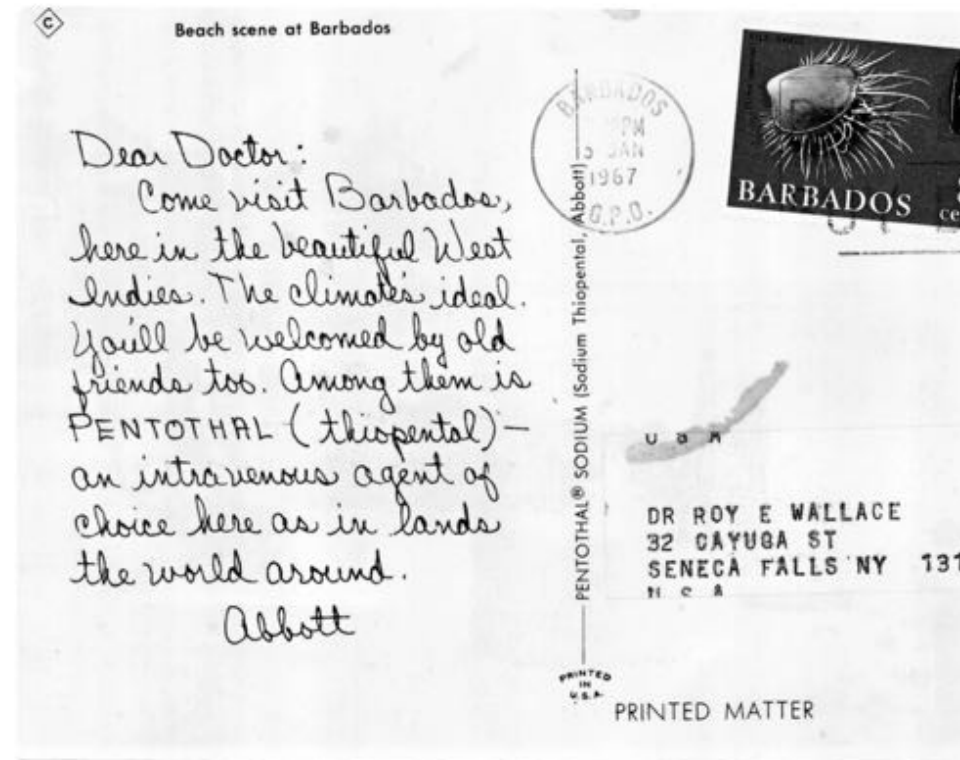 C
Beach scene at Barbados
Dear Doctor:
Come visit Barbados,
here in the beautiful West
Indies. The climate's ideal.
You'll be welcomed by old
friends too. Among them is
PENTOTHAL (thiopental)—
an intravenous agent of
choice here as in lands
the world around.
Abbott
PENTOTHAL® SODIUM (Sodium Thiopental, Abbott)
PRINTED
IN
U.S.A.
BARBADOS
PM
JAN
1967
G.P.O.
BARBADOS
DR ROY E WALLACE
32 CAYUGA ST
SENECA FALLS NY 131
U S A
PRINTED MATTER